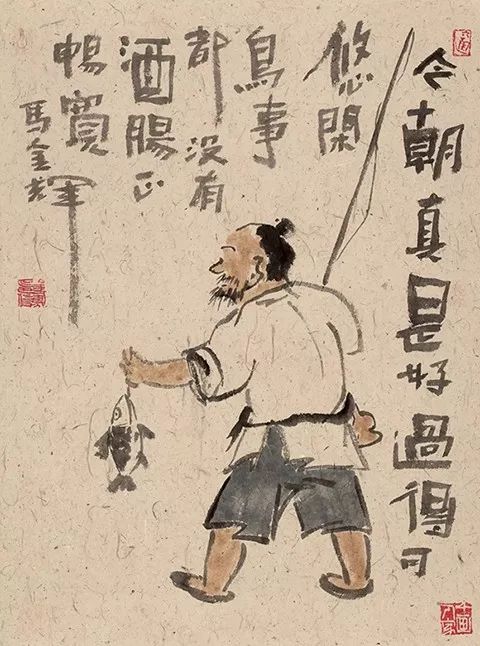 今朝真是好過得可
悠閑
鳥事
都沒有
酒腸正
暢寬
馬金輝